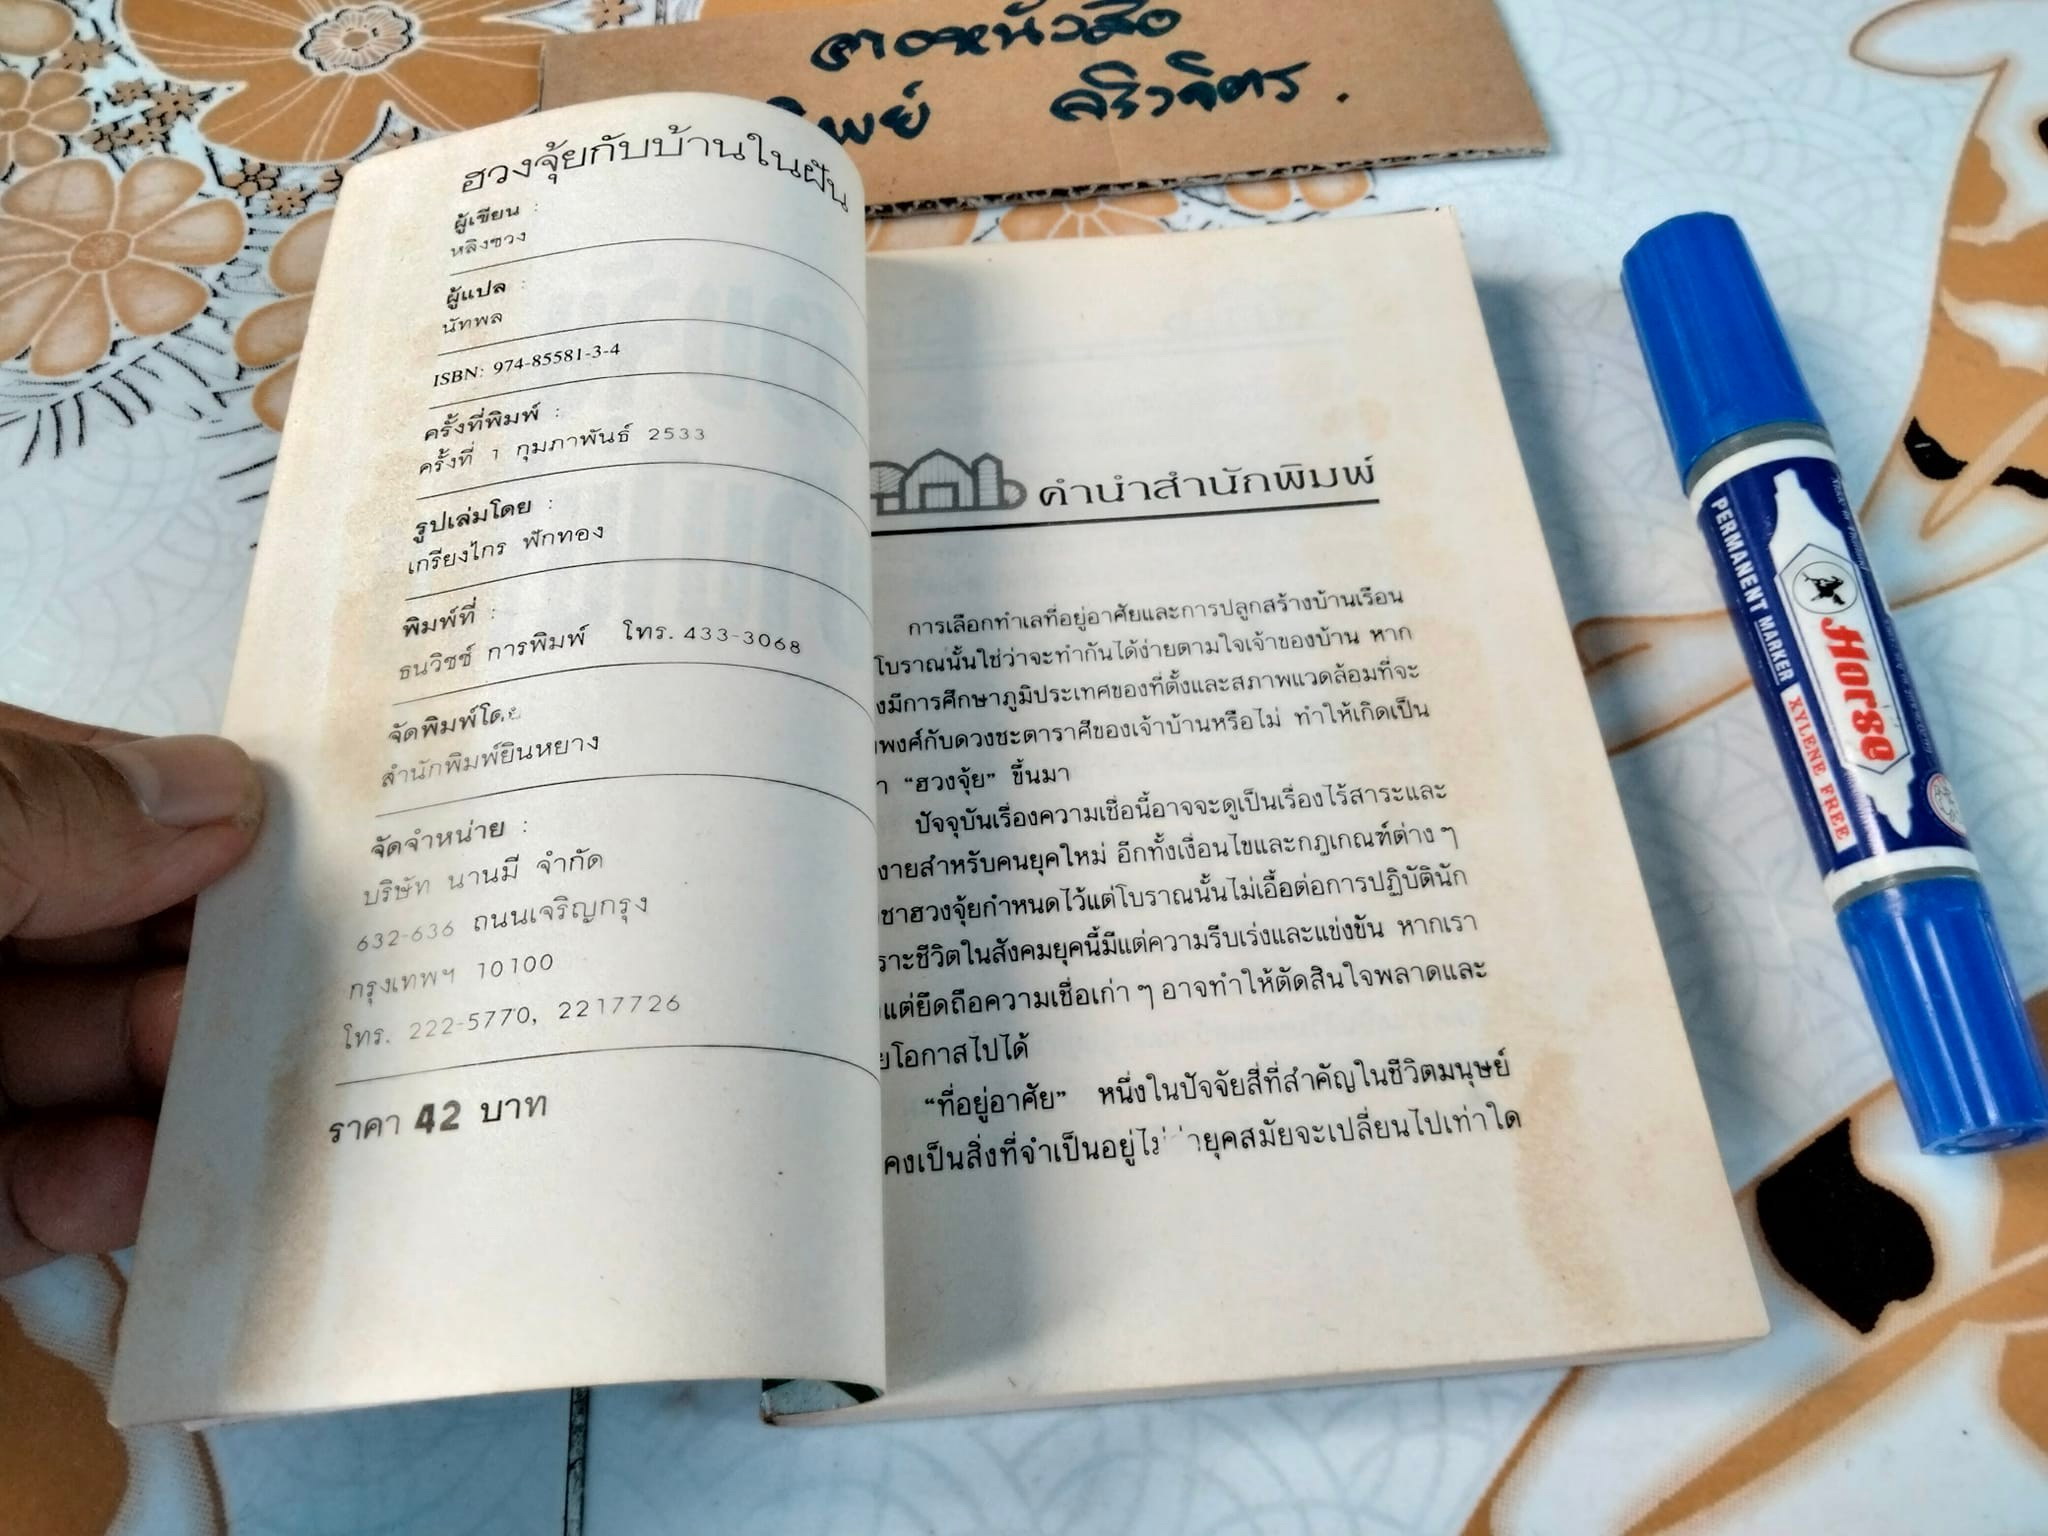 ลางหนังสือ
ทิพย์ ศริวจิตร.
ฮวงจุ้ยกับบ้านในฝัน
ผู้เขียน :
หลิงซวง
ผู้แปล :
นัทพล
ISBN: 974-85581-3-4
ครั้งที่พิมพ์ :
ครั้งที่ 1 กุมภาพันธ์ 2533
รูปเล่มโดย :
เกรียงไกร ฟักทอง
พิมพ์ที่ :
ธนวิชช์ การพิมพ์ โทร. 433-3068
จัดพิมพ์โดย
สำนักพิมพ์ยินหยาง
จัดจำหน่าย :
บริษัท นานมี จำกัด
632-636 ถนนเจริญกรุง
กรุงเทพฯ 10100
โทร. 222-5770, 2217726
ราคา 42 บาท
คำนำสำนักพิมพ์
การเลือกทำเลที่อยู่อาศัยและการปลูกสร้างบ้านเรือน
โบราณนั้นใช่ว่าจะทำกันได้ง่ายตามใจเจ้าของบ้าน หาก
งมีการศึกษาภูมิประเทศของที่ตั้งและสภาพแวดล้อมที่จะ
พงศ์กับดวงชะตาราศีของเจ้าบ้านหรือไม่ ทำให้เกิดเป็น
า “ฮวงจุ้ย” ขึ้นมา
ปัจจุบันเรื่องความเชื่อนี้อาจจะดูเป็นเรื่องไร้สาระและ
งายสำหรับคนยุคใหม่ อีกทั้งเงื่อนไขและกฎเกณฑ์ต่าง ๆ
ชาฮวงจุ้ยกำหนดไว้แต่โบราณนั้นไม่เอื้อต่อการปฏิบัตินัก
ราะชีวิตในสังคมยุคนี้มีแต่ความรีบเร่งและแข่งขัน หากเรา
แต่ยึดถือความเชื่อเก่า ๆ อาจทำให้ตัดสินใจพลาดและ
ยโอกาสไปได้
“ที่อยู่อาศัย” หนึ่งในปัจจัยสี่ที่สำคัญในชีวิตมนุษย์
คงเป็นสิ่งที่จำเป็นอยู่ไม่ว่ายุคสมัยจะเปลี่ยนไปเท่าใด
PERMANENT MARKER XYLENE FREE
Horse